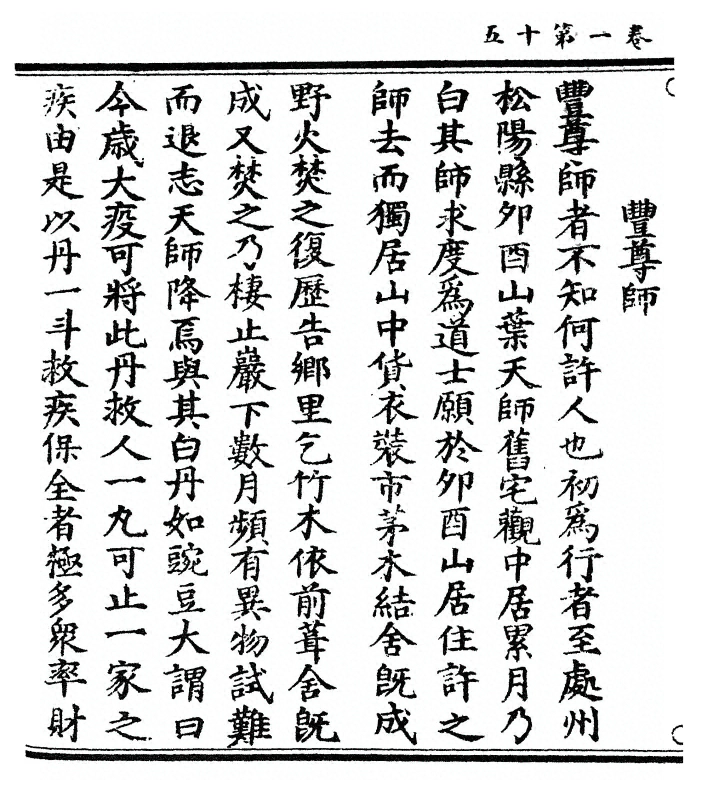 卷一第十五
豐尊師
豐尊師者不知何許人也初為行者至處州
松陽縣卯酉山葉天師舊宅觀中居累月乃
白其師求度爲道士願於卯酉山居住許之
師去而獨居山中貨衣裝市茅木結舍既成
野火焚之復歷告鄉里乞竹木依前葺舍既
成又焚之乃棲止巖下數月頻有異物試難
而退志天師降焉與其白丹如豌豆大謂曰
今歲大疫可將此丹救人一丸可止一家之
疾由是以丹一斗救疾保全者極多眾率財